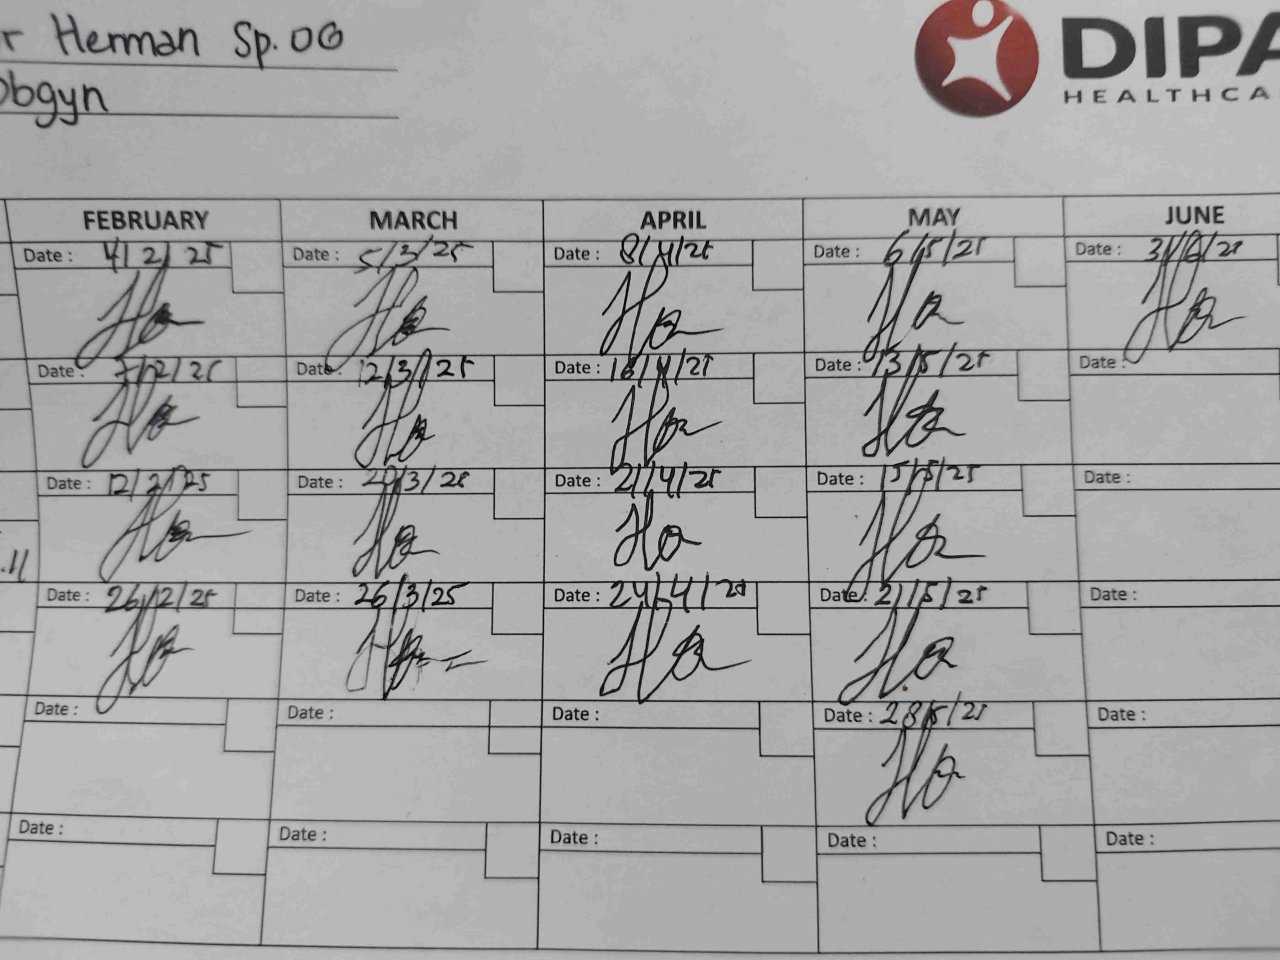 r Herman Sp.OG
Obgyn
DIPA
HEALTHCA
FEBRUARY MARCH APRIL MAY JUNE
Date : 4/2/25 Date : 5/3/25 Date : 8/4/25 Date : 6/5/25 Date : 3/6/25
Date : 7/2/25 Date : 12/3/25 Date : 16/4/25 Date : 13/5/25 Date :
Date : 12/2/25 Date : 20/3/25 Date : 21/4/25 Date : 15/5/25 Date :
Date : 26/2/25 Date : 26/3/25 Date : 24/4/25 Date : 21/5/25 Date :
Date : Date : Date : Date : 28/5/25 Date :
Date : Date : Date : Date : Date :